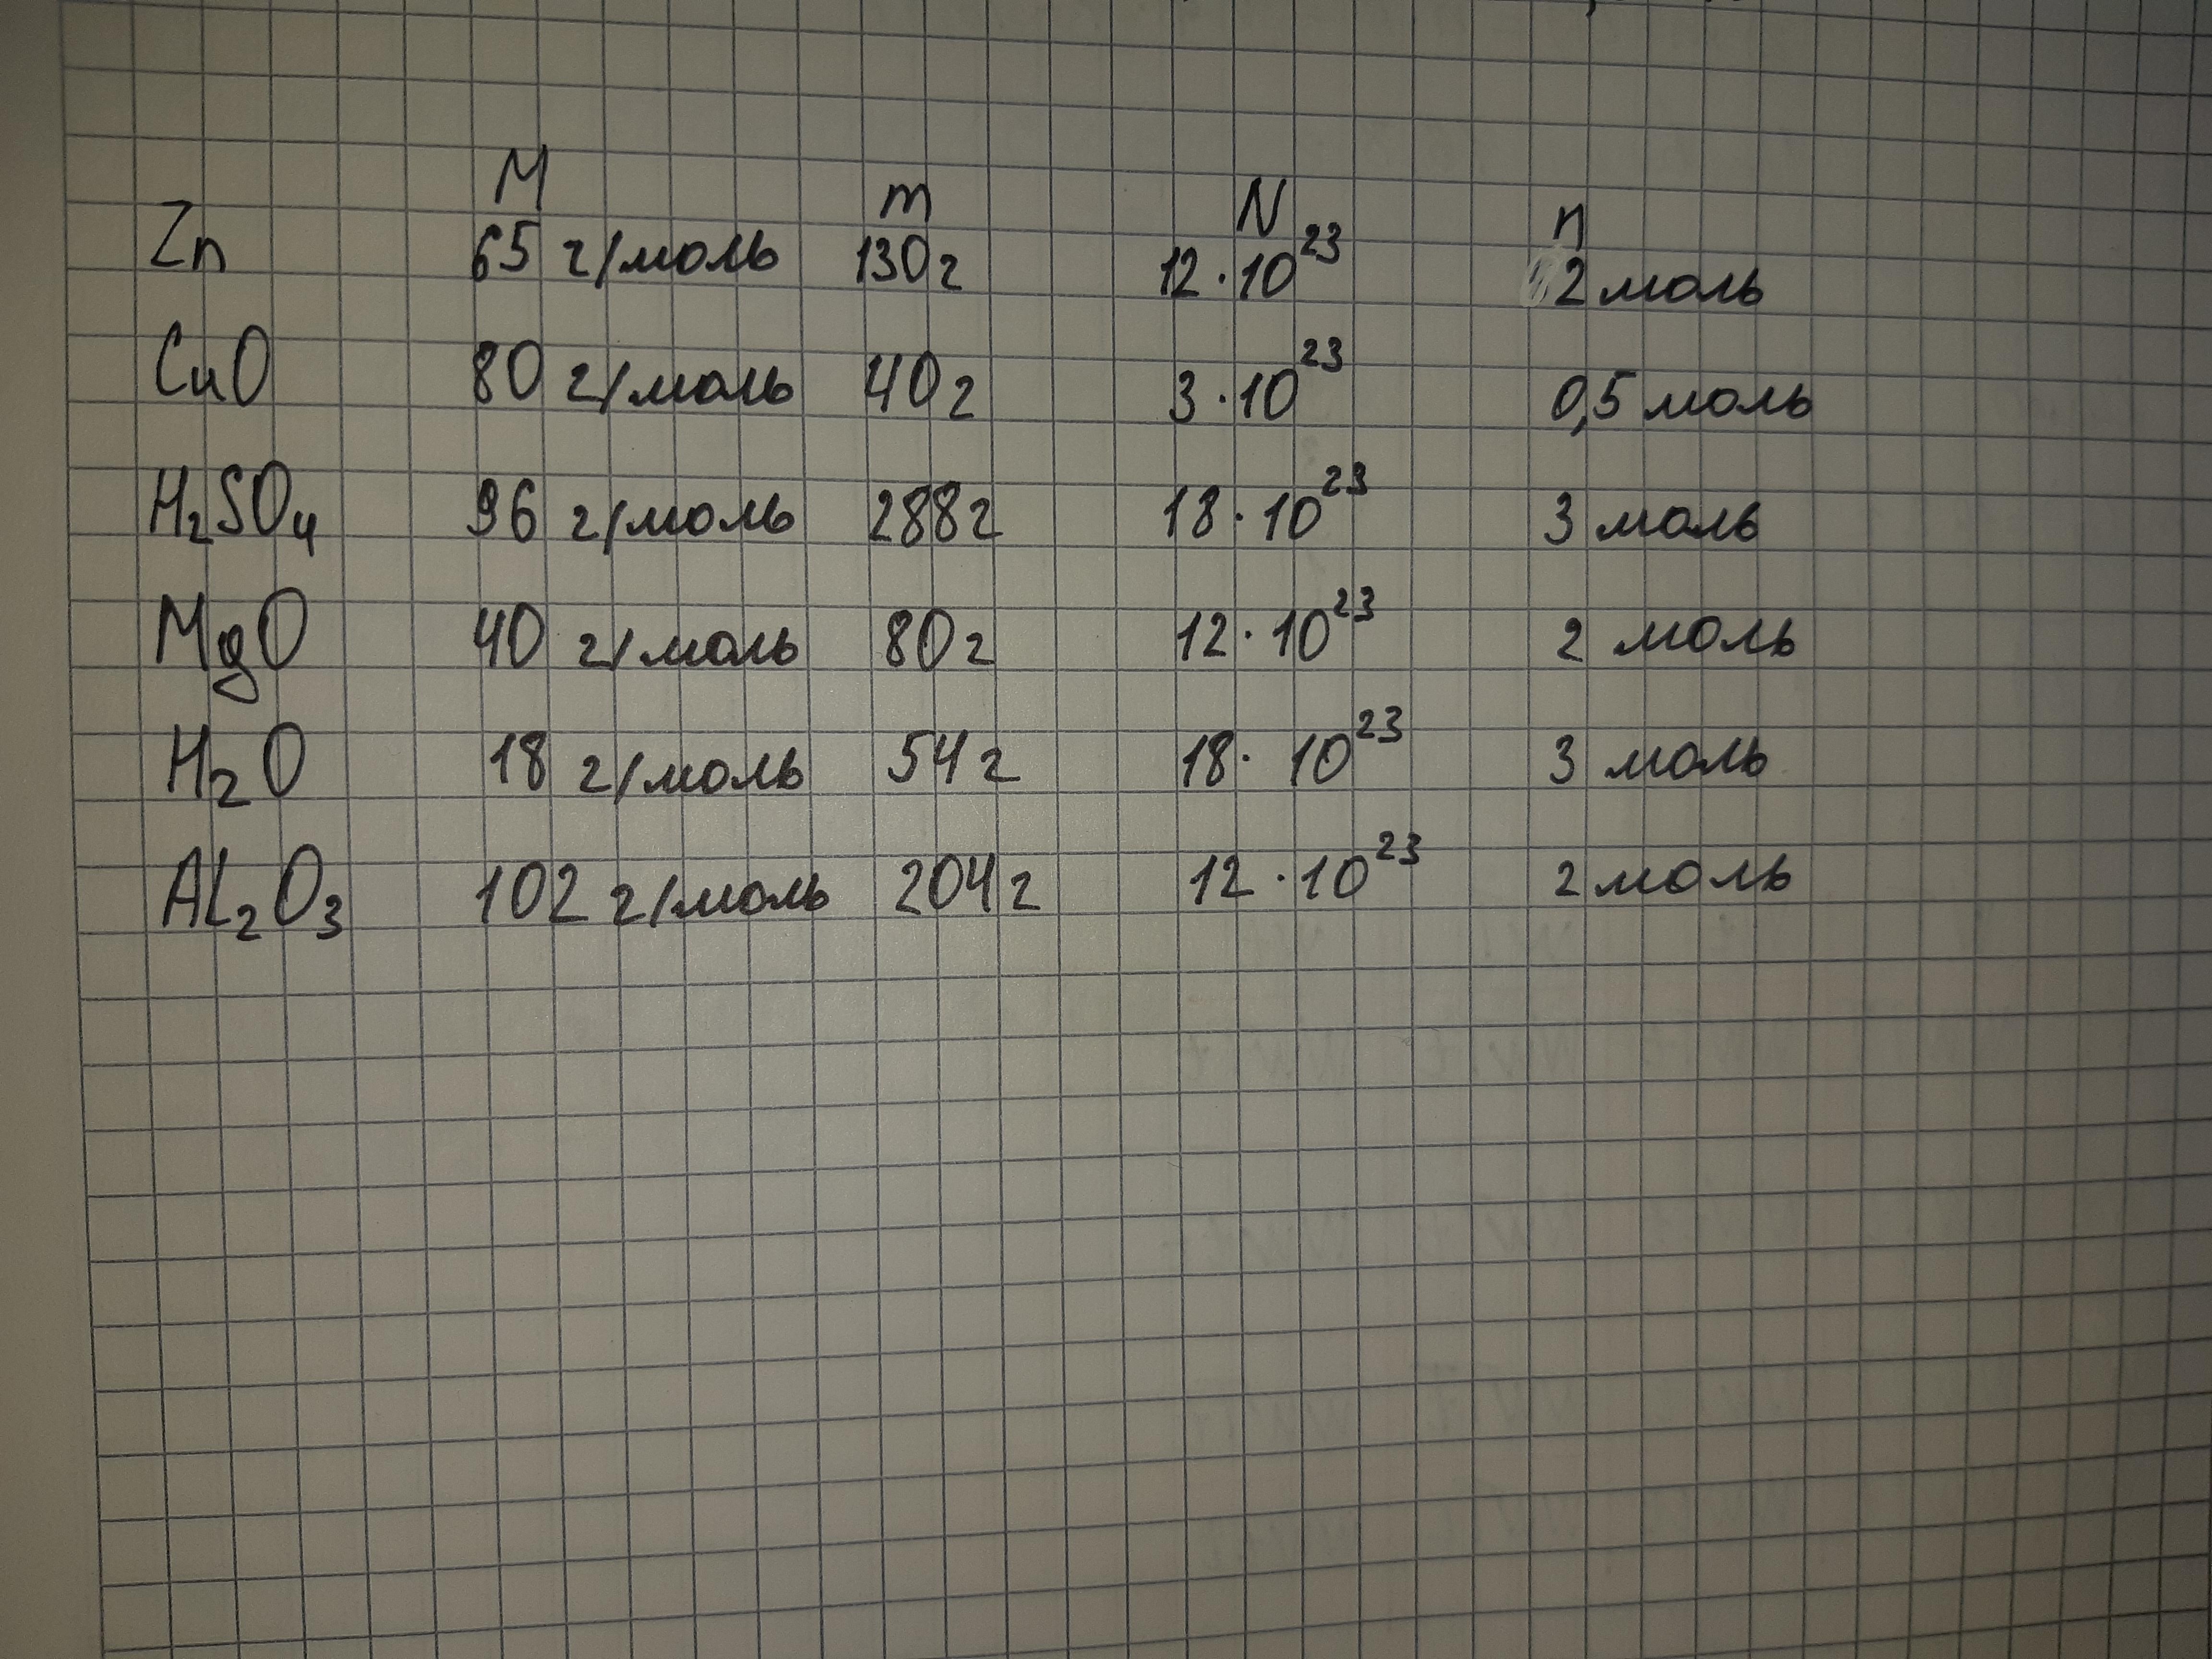 M m N n
Zn 65 г/моль 130г 12·10²³ 2 моль
CuO 80 г/моль 40г 3·10²³ 0,5 моль
H₂SO₄ 96 г/моль 288г 18·10²³ 3 моль
MgO 40 г/моль 80г 12·10²³ 2 моль
H₂O 18 г/моль 54г 18·10²³ 3 моль
AL₂O₃ 102 г/моль 204г 12·10²³ 2 моль